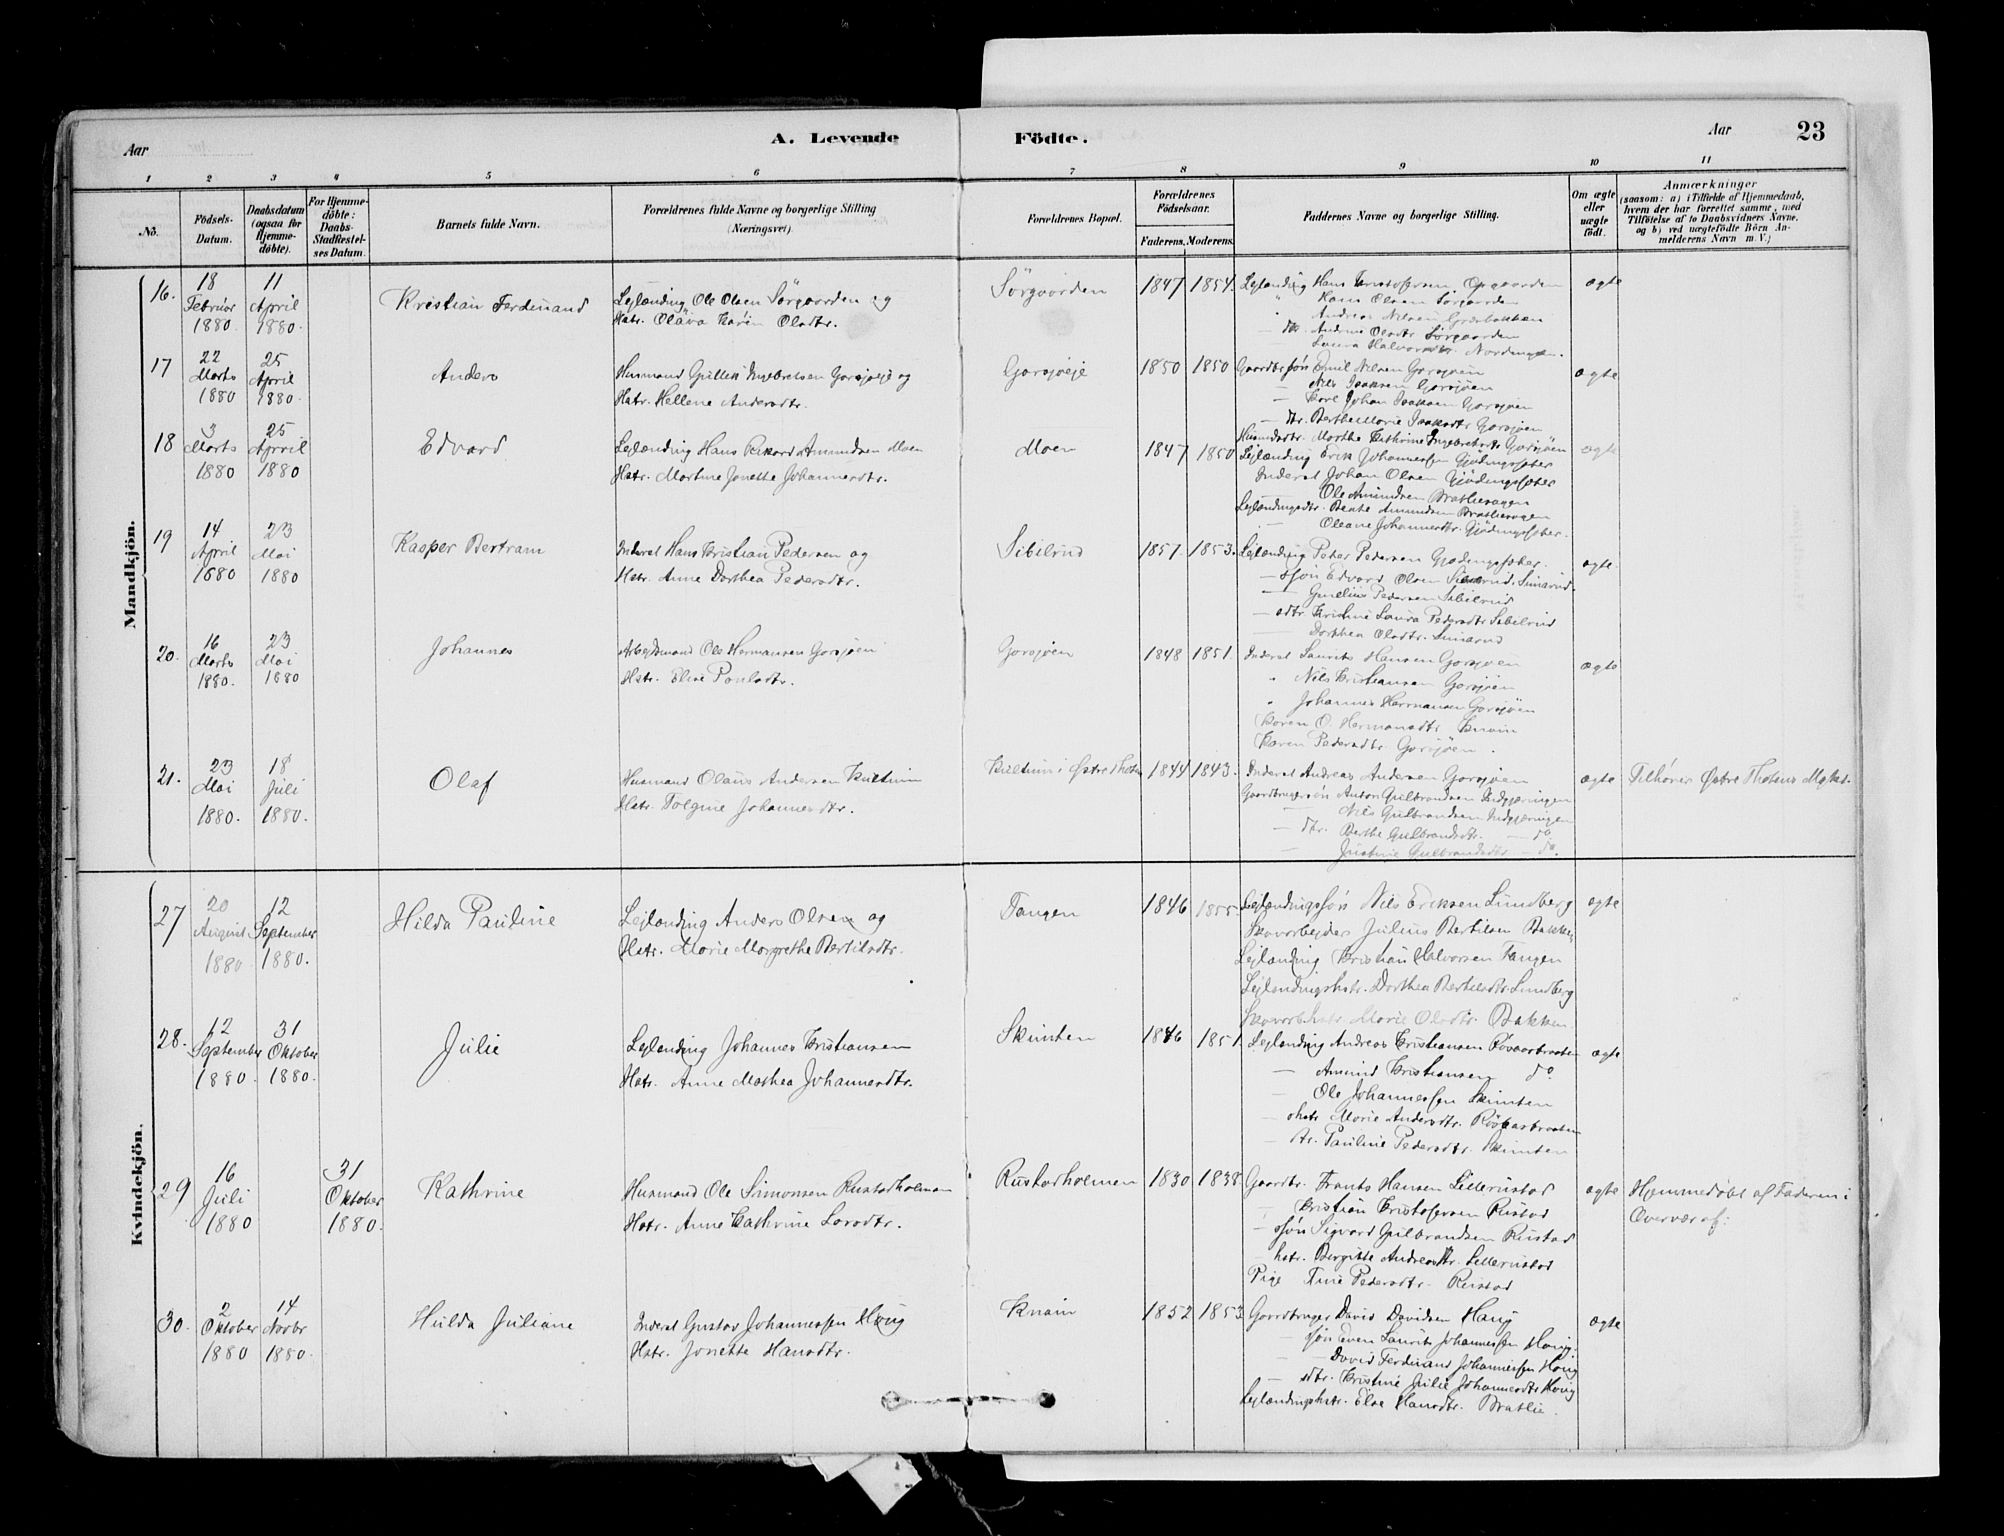 A. Levende Födte.
Aar
Aar 23
1 2 3 4 5 6 7 8 9 10 11
No.
Födsels-Datum.
Daabsdatum (ogsaa for Hjemmedöbte).
For Hjemmedöbte: Daabs-Stadfæstelses Datum.
Barnets fulde Navn.
Forældrenes fulde Navne og borgerlige Stilling (Næringsvei).
Forældrenes Bopæl.
Forældrenes Födselsaar.
Faderens. Moderens.
Faddernes Navne og borgerlige Stilling.
Om ægte eller uægte födt.
Anmærkninger
(saasom: a) i Tilfælde af Hjemmedaab, hvem der har forrettet samme, med Tilföielse af to Daabsvidners Navne, og b) ved uægtefödte Börn Anmelderens Navn m. V.)
Mandkjön.
16. 18 Februar 1880. 11 April 1880.
Kristian Ferdinand
Lejlænding Ole Olsen Sörgaarden og
Hstr. Olava Karin Olsdtr.
Sörgaarden 1847 1854.
Lejlænding Hans Kristofersen Opgaarden
Hans Olsen Sörgaarden
Andreas Nilsen
dtr. Andrine Olsdtr. Sörgaarden
Laura Halvorsdtr.
ægte
17 22 Marts 1880 25 April 1880.
Anders
Husmand Gullek Ingebretsen Gorsjøeje og
Hstr. Hellene Andersdtr.
Gorsjøeje 1850 1850
Gaardbr.søn Emil Nilsen Gorsjøen
Nils Isaksen Gorsjøen
Karl Johan Isaksen Gorsjøen
dtr. Berthe Marie Isaksdtr. Gorsjøen
Husmdsdtr. Marthe Kathrine Ingebretsdtr. Gorsjøen
ægte
18 3 Marts 1880 25 April 1880
Edvard
Lejlænding Hans Rikard Amundsen Moen
Hstr. Martine Jonette Johannesdtr.
Moen 1847 1850
Lejlænding Erik Johannessen Gjödingssæter
Inderst Johan Olsen Gjödingssæter
Ole Amundsen
Lejlændingsdtr. Beate Amundsen
Oleane Johannesdtr. Gjödingssæter.
ægte
19 14 April 1880 23 Mai 1880
Kasper Bertram
Inderst Hans Kristian Pedersen og
Hstr. Anne Dorthea Pedersdtr.
Sibilrud 1857. 1853.
Lejlænding Peter Pedersen Gjødingssæter.
søn Edvard Olsen
Gulius Pedersen Sibilrud
dtr. Kristine Laura Pedersdtr. Sibilrud
Dorthea Olsdtr.
ægte
20. 16 Marts 1880. 23 Mai 1880
Johannes
Arbejdsmand Ole Hermansen Gorsjøen
Hstr. Elise Poulsdtr.
Gorsjøen 1848 1851.
Inderst Laurits Hansen Gorsjøen
" Nils Kristiansen Gorsjøen
" Johannes Hermansen Gorsjøen
Karen O. Hermansdtr. Knain
Karen Pedersdtr. Gorsjøen.
ægte
21. 23 Mai 1880. 18 Juli 1880.
Olaf
Husmand Olaus Andersen
Hstr. Tolgine Johannesdtr.
1844 1843.
Inderst Andreas Andersen Gorsjøen
Gaardbrugersøn Anton Gulbrandsen
Nils Gulbrandsen
dtr. Berthe Gulbrandsdtr. — do.
Justine Gulbrandsdtr. — do.
ægte
Tilhører Østre Thotens
Kvindekjön.
27 20 August 1880 12 September 1880.
Hilda Pauline
Lejlænding Anders Olsen og
Hstr. Marie Margrethe Bertilsdtr.
Tangen 1846 1855.
Lejlændingssøn Nils Eriksen Lundberg
Skovarbejder Julius Bertilsen Bakken
Lejlænding Kristian Halvorsen Tangen
Lejlændingshstr. Dorthea Bertilsdtr. Lundberg
Skovarb.hstr. Marie Olsdtr. Bakken
ægte
28. 12 September 1880. 31 Oktober 1880.
Julie
Lejlænding Johannes Kristiansen
Hstr. Anne Mathea Johannesdtr.
Skunten 1846 1851.
Lejlænding Andreas Kristiansen
Amund Kristiansen do.
Ole Johannessen Skunten
hstr. Marie Andersdtr.
dtr. Pauline Pedersdtr. Skunten
ægte
29 16 Juli 1880 31 Oktober 1880.
Kathrine
Husmand Ole Simonsen Rustadholmen
Hstr. Anne Kathrine Larsdtr.
Rustadholmen 1830 1838
Gaardbr. Frants Hansen Lillerustad
Kristian Kristofersen Rustad
søn Sigvard Gulbrandsen Rustad
hstr. Bergitte Andreasdtr. Lillerustad
Pige Tine Pedersdtr. Rustad
ægte
Hjemmedøbt af Faderen i
Overvær af:
30. 2 Oktober 1880 14 Novbr 1880.
Hulda Juliane
Inderst Gustav Johannessen Haug
Hstr. Jonette Hansdtr.
Knain 1852 1853
Gaardbruger David Davidsen Haug
søn Even Laurits Johannessen Haug.
David Ferdinand Johannessen Haug
dtr. Kristine Julie Johannesdtr. Haug
Lejlændingshstr. Else Hansdtr. Bratlie.
ægte